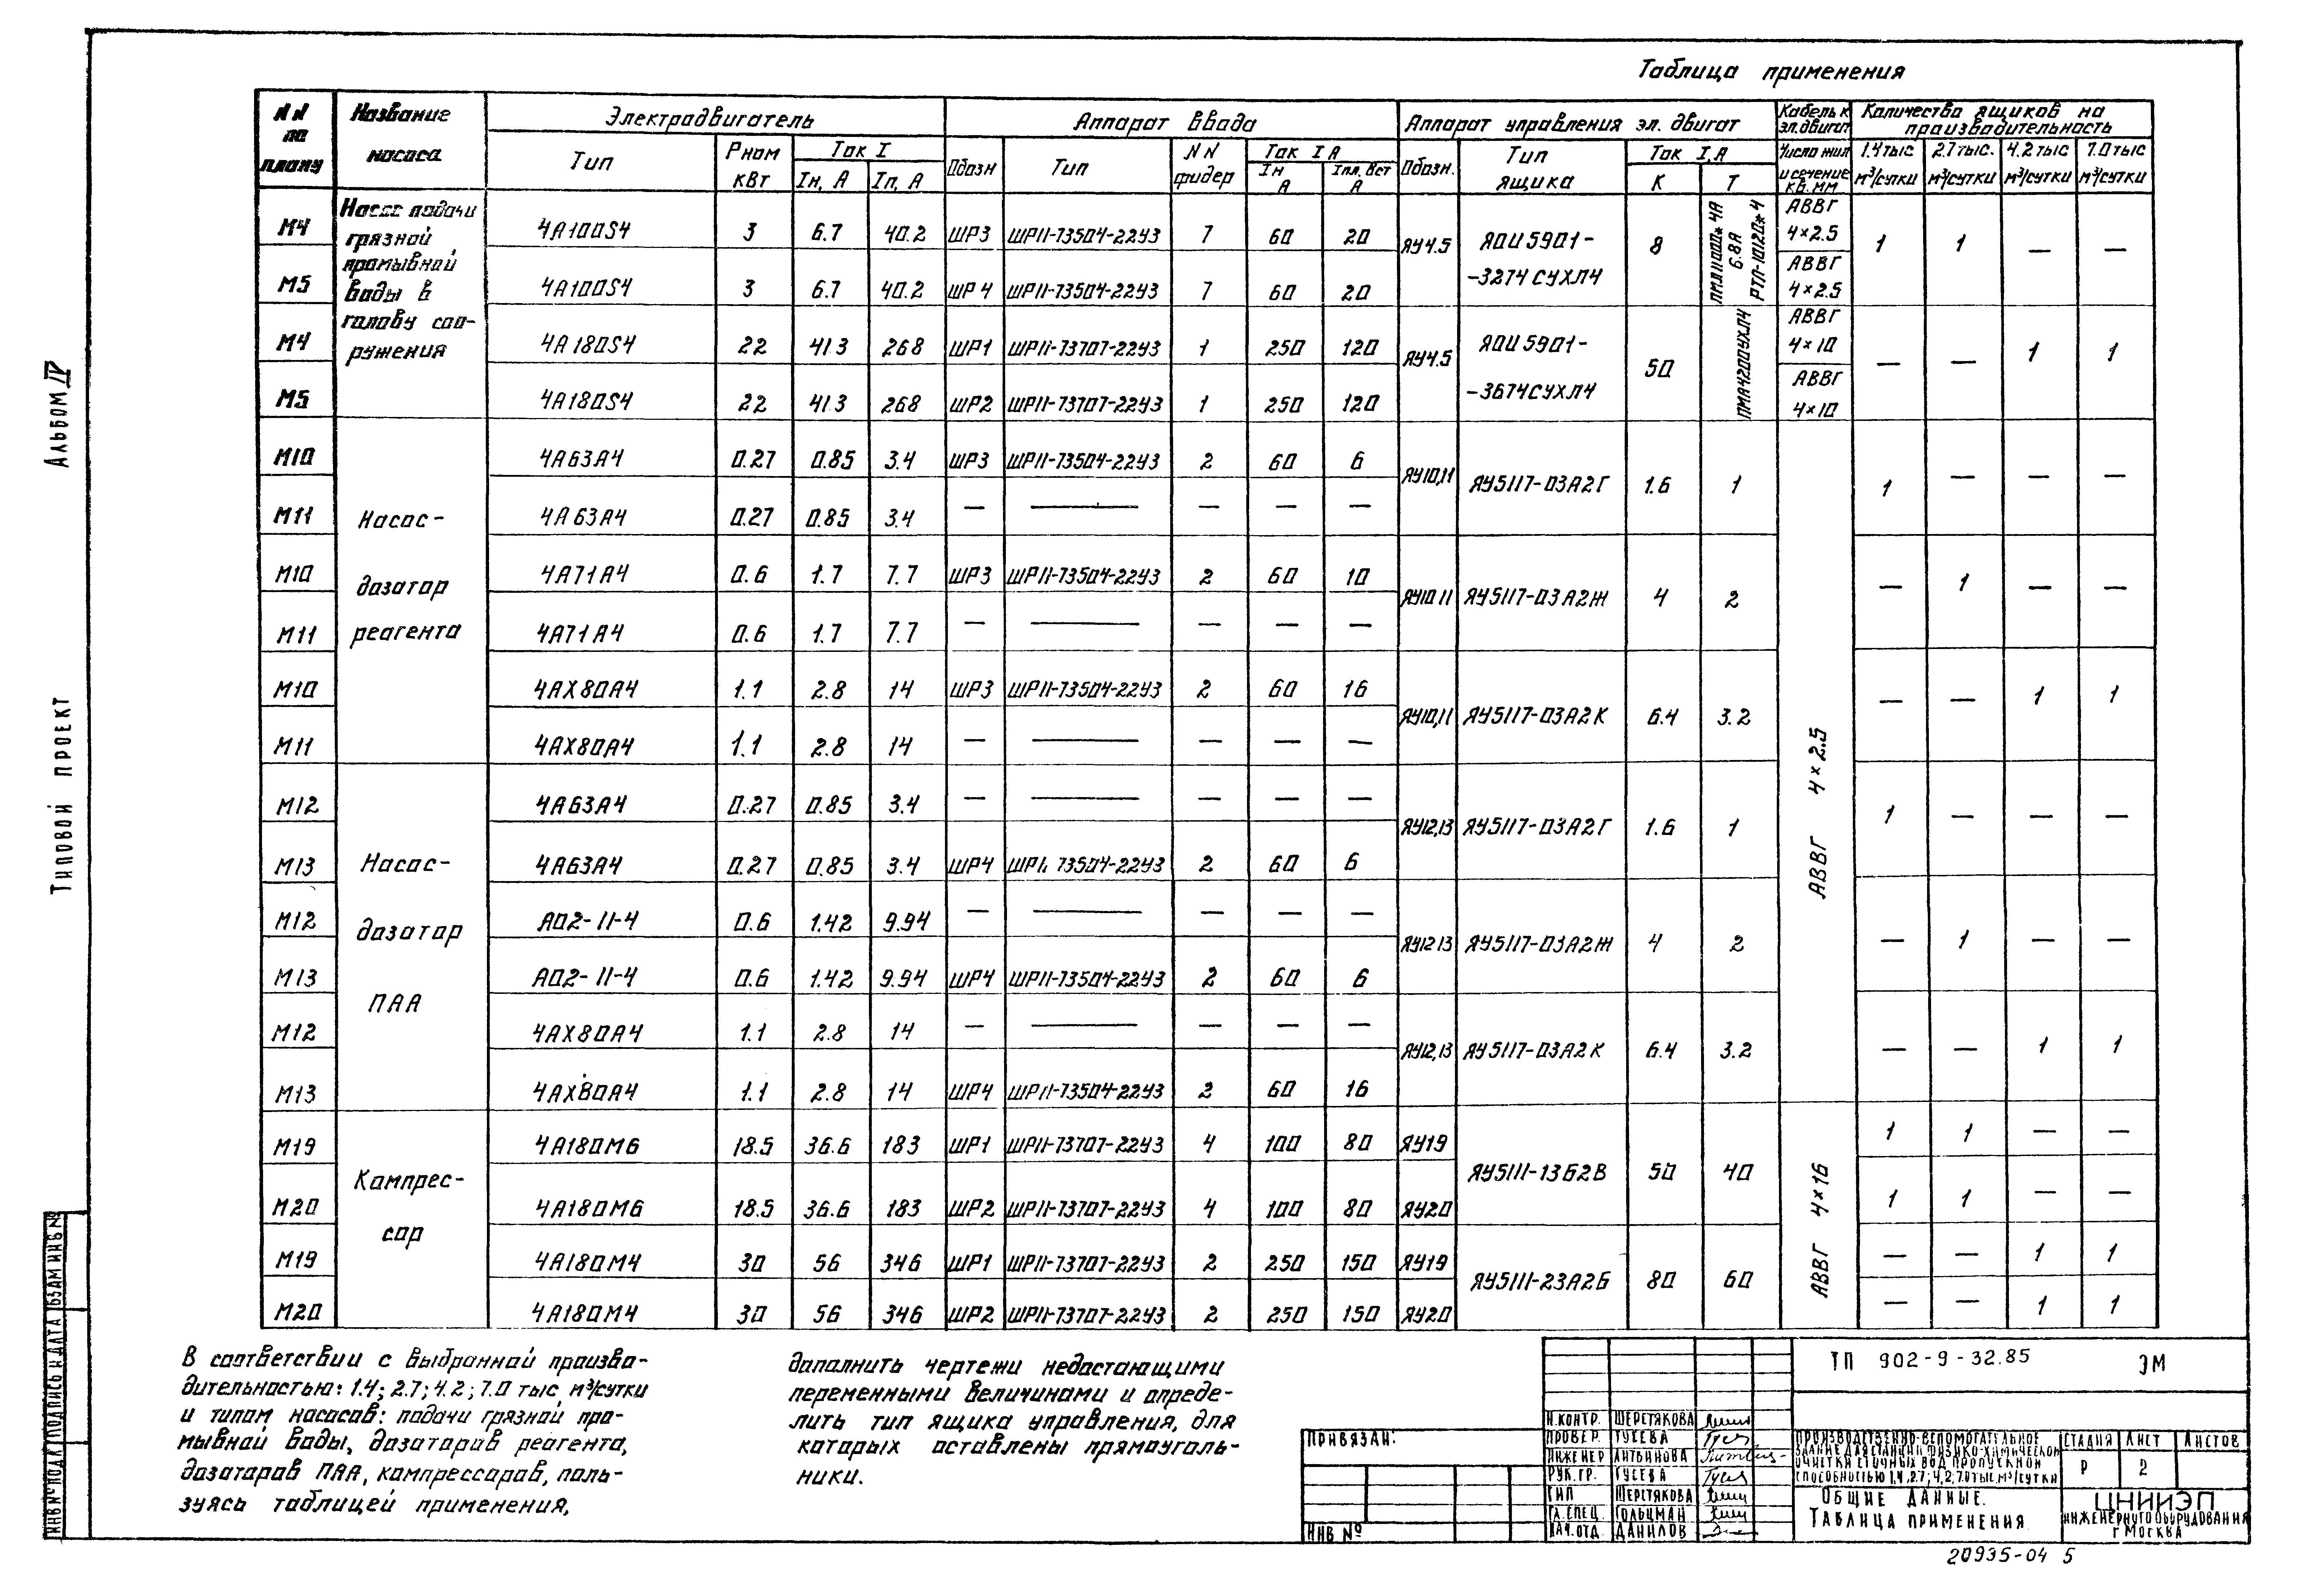 Таблица применения
NN по плану
Название насоса
Электродвигатель
Аппарат ввода
Аппарат управления эл. двигат
Кабель к эл. двигат
Количество ящиков на производительность
Тип
Рном кВт
Ток I
Iн, А
Iп, А
Обозн
Тип
NN фидер
Ток I А
Iн А
Iпл. вст А
Обозн.
Тип ящика
Ток I, А
К
Т
Число жил и сечение кв. мм
1.4 тыс м³/сутки
2.7 тыс. м³/сутки
4.2 тыс м³/сутки
7.0 тыс м³/сутки
Насос подачи грязной промывной воды в голову соо-ружения
М4 4А100S4 3 6.7 40.2 ШР3 ШР11-73504-22У3 7 60 20
М5 4А100S4 3 6.7 40.2 ШР4 ШР11-73504-22У3 7 60 20
ЯУ4.5 ЯОУ5901--3274 СУХЛ4 8 ПМА1100*4А 6.8А РТЛ-1012О*4
АВВГ 4×2.5
АВВГ 4×2.5
1 1 — —
М4 4А180S4 22 41.3 268 ШР1 ШР11-73707-22У3 1 250 120
М5 4А180S4 22 41.3 268 ШР2 ШР11-73707-22У3 1 250 120
ЯУ4.5 ЯОУ5901--3674СУХЛ4 50 ПМА4200УХЛ4
АВВГ 4×10
АВВГ 4×10
— — 1 1
Насос-дозатор реагента
М10 4А63А4 0.27 0.85 3.4 ШР3 ШР11-73504-22У3 2 60 6
М11 4А63А4 0.27 0.85 3.4 — — — — —
ЯУ10,11 ЯУ5117-03А2Г 1.6 1
1 — — —
М10 4А71А4 0.6 1.7 7.7 ШР3 ШР11-73504-22У3 2 60 10
М11 4А71А4 0.6 1.7 7.7 — — — — —
ЯУ10 11 ЯУ5117-03А2Ж 4 2
— 1 — —
М10 4АХ80А4 1.1 2.8 14 ШР3 ШР11-73504-22У3 2 60 16
М11 4АХ80А4 1.1 2.8 14 — — — — —
ЯУ10,11 ЯУ5117-03А2К 6.4 3.2
— — 1 1
АВВГ 4×2.5
Насос-дозатор ПАА
М12 4А63А4 0.27 0.85 3.4 — — — — —
М13 4А63А4 0.27 0.85 3.4 ШР4 ШР11 73504-22У3 2 60 6
ЯУ12,13 ЯУ5117-03А2Г 1.6 1
1 — — —
М12 АО2-11-4 0.6 1.42 9.94 — — — — —
М13 АО2-11-4 0.6 1.42 9.94 ШР4 ШР11-73504-22У3 2 60 6
ЯУ12 13 ЯУ5117-03А2Ж 4 2
— 1 — —
М12 4АХ80А4 1.1 2.8 14 — — — — —
М13 4АХ80А4 1.1 2.8 14 ШР4 ШР11-73504-22У3 2 60 16
ЯУ12,13 ЯУ5117-03А2К 6.4 3.2
— — 1 1
Компрес-сор
М19 4А180М6 18.5 36.6 183 ШР1 ШР11-73707-22У3 4 100 80 ЯУ19
1 1 — —
М20 4А180М6 18.5 36.6 183 ШР2 ШР11-73707-22У3 4 100 80 ЯУ20
1 1 — —
ЯУ5111-13Б2В 50 40
М19 4А180М4 30 56 346 ШР1 ШР11-73707-22У3 2 250 150 ЯУ19
— — 1 1
М20 4А180М4 30 56 346 ШР2 ШР11-73707-22У3 2 250 150 ЯУ20
— — 1 1
ЯУ5111-23А2Б 80 60
АВВГ 4×16
В соответствии с выбранной произво-
дительностью: 1.4; 2.7; 4.2; 7.0 тыс м³/сутки
и типом насосов: подачи грязной про-
мывной воды, дозаторов реагента,
дозаторов ПАА, компрессоров, поль-
зуясь таблицей применения,
дополнить чертежи недостающими
переменными величинами и опреде-
лить тип ящика управления, для
которых оставлены прямоуголь-
ники.
Альбом IV
Типовой проект
ИНВ № ПОДЛ
ПОДПИСЬ И ДАТА
ВЗАМ ИНВ №
ПРИВЯЗАН:
ИНВ №
Н.КОНТР. ШЕРСТЯКОВА
ПРОВЕР. ГУСЕВА
ИНЖЕНЕР АНТОНОВА
РУК.ГР. ГУСЕВА
ГИП ШЕРСТЯКОВА
ГЛ.СПЕЦ ГОЛЬЦМАН
НАЧ.ОТД. ДАНИЛОВ
ТП 902-9-32.85 ЭМ
ПРОИЗВОДСТВЕННО-ВСПОМОГАТЕЛЬНОЕ
ЗДАНИЕ ДЛЯ СТАНЦИИ ФИЗИКО-ХИМИЧЕСКОЙ
ОЧИСТКИ СТОЧНЫХ ВОД ПРОПУСКНОЙ
СПОСОБНОСТЬЮ 1,4; 2,7; 4,2; 7.0 ТЫС. М³/СУТКИ
СТАДИЯ ЛИСТ ЛИСТОВ
Р 2
ОБЩИЕ ДАННЫЕ.
ТАБЛИЦА ПРИМЕНЕНИЯ
ЦНИИЭП
ИНЖЕНЕРНОГО ОБОРУДОВАНИЯ
Г МОСКВА
20935-04 5